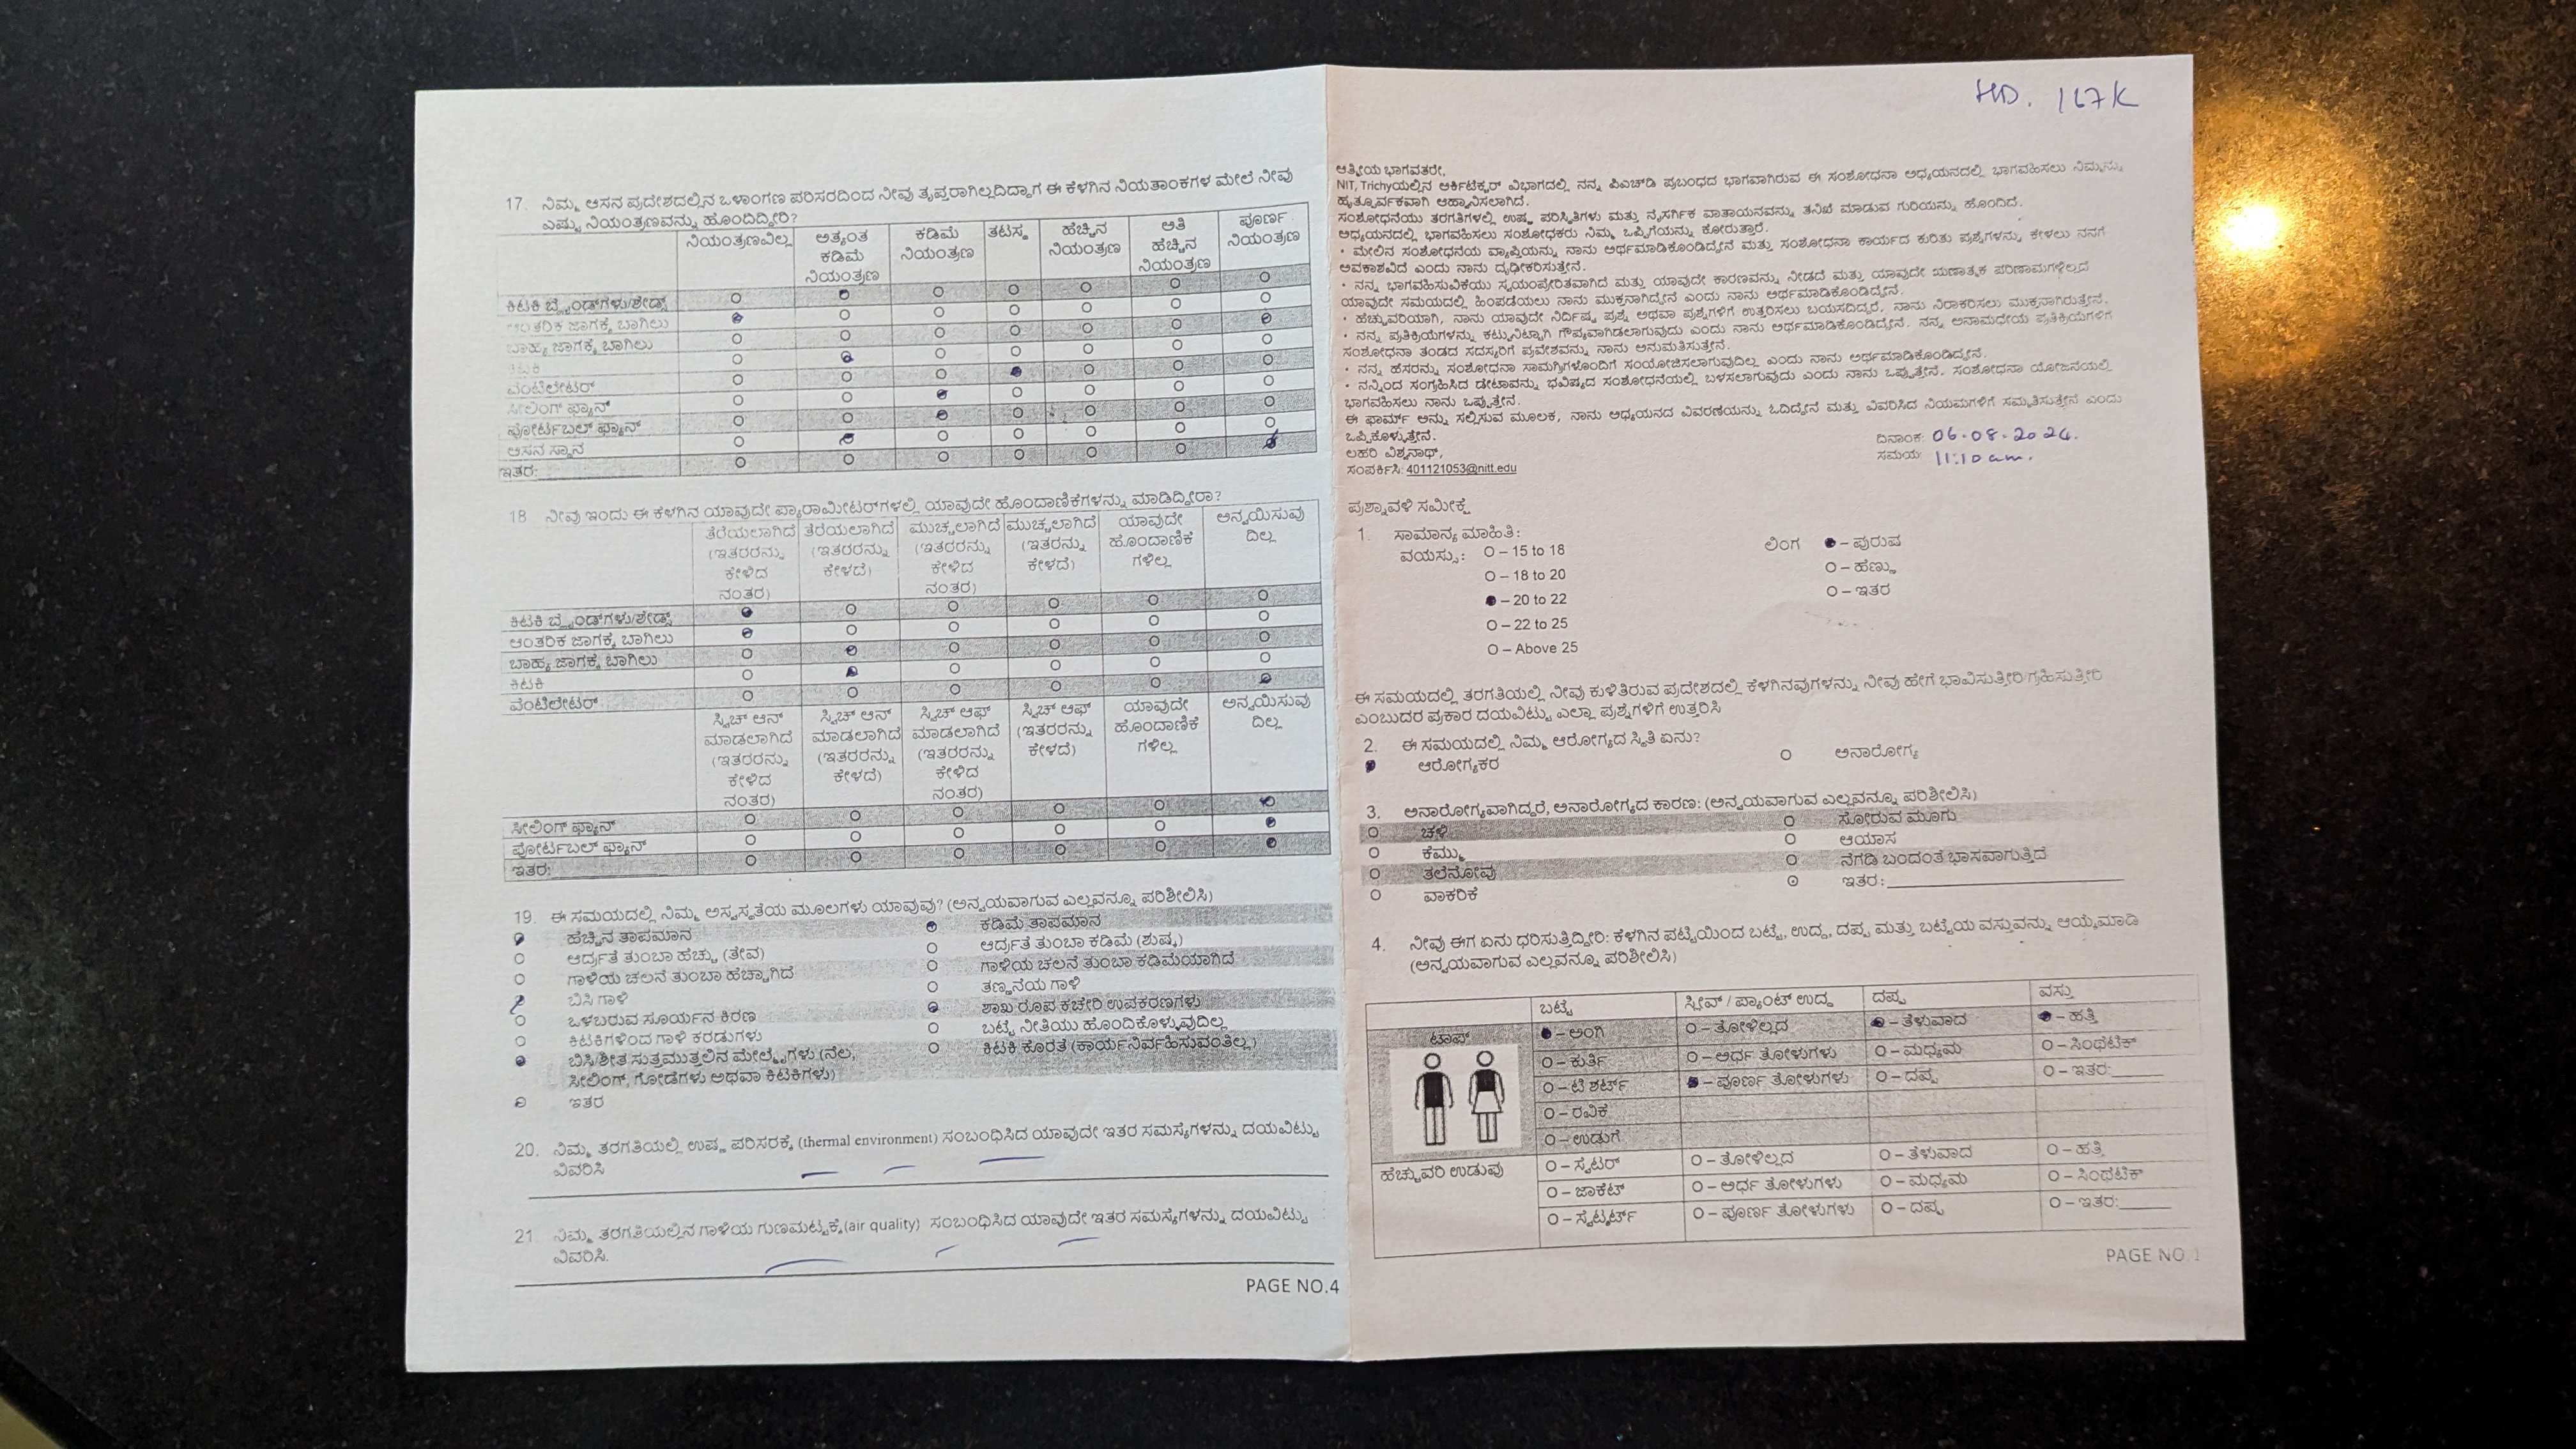 17. ನಿಮ್ಮ ಆಸನ ಪ್ರದೇಶದಲ್ಲಿನ ಒಳಾಂಗಣ ಪರಿಸರದಿಂದ ನೀವು ತೃಪ್ತರಾಗಿಲ್ಲದಿದ್ದಾಗ ಈ ಕೆಳಗಿನ ನಿಯತಾಂಕಗಳ ಮೇಲೆ ನೀವು
ಎಷ್ಟು ನಿಯಂತ್ರಣವನ್ನು ಹೊಂದಿದ್ದೀರಿ?
ನಿಯಂತ್ರಣವಿಲ್ಲ ಅತ್ಯಂತ ಕಡಿಮೆ ನಿಯಂತ್ರಣ ಕಡಿಮೆ ನಿಯಂತ್ರಣ ತಟಸ್ಥ ಹೆಚ್ಚಿನ ನಿಯಂತ್ರಣ ಅತಿ ಹೆಚ್ಚಿನ ನಿಯಂತ್ರಣ ಪೂರ್ಣ ನಿಯಂತ್ರಣ
ಕಿಟಕಿ ಬ್ಲೈಂಡ್‌ಗಳು/ಶೇಡ್ಸ್
ಆಂತರಿಕ ಜಾಗಕ್ಕೆ ಬಾಗಿಲು
ಬಾಹ್ಯ ಜಾಗಕ್ಕೆ ಬಾಗಿಲು
ಕಿಟಕಿ
ವೆಂಟಿಲೇಟರ್
ಸೀಲಿಂಗ್ ಫ್ಯಾನ್
ಪೋರ್ಟಬಲ್ ಫ್ಯಾನ್
ಆಸನ ಸ್ಥಾನ
ಇತರ:
18 ನೀವು ಇಂದು ಈ ಕೆಳಗಿನ ಯಾವುದೇ ಪ್ಯಾರಾಮೀಟರ್‌ಗಳಲ್ಲಿ ಯಾವುದೇ ಹೊಂದಾಣಿಕೆಗಳನ್ನು ಮಾಡಿದ್ದೀರಾ?
ತೆರೆಯಲಾಗಿದೆ (ಇತರರನ್ನು ಕೇಳಿದ ನಂತರ) ತೆರೆಯಲಾಗಿದೆ (ಇತರರನ್ನು ಕೇಳದೆ) ಮುಚ್ಚಲಾಗಿದೆ (ಇತರರನ್ನು ಕೇಳಿದ ನಂತರ) ಮುಚ್ಚಲಾಗಿದೆ (ಇತರರನ್ನು ಕೇಳದೆ) ಯಾವುದೇ ಹೊಂದಾಣಿಕೆ ಗಳಿಲ್ಲ ಅನ್ವಯಿಸುವು ದಿಲ್ಲ
ಕಿಟಕಿ ಬ್ಲೈಂಡ್‌ಗಳು/ಶೇಡ್ಸ್
ಆಂತರಿಕ ಜಾಗಕ್ಕೆ ಬಾಗಿಲು
ಬಾಹ್ಯ ಜಾಗಕ್ಕೆ ಬಾಗಿಲು
ಕಿಟಕಿ
ವೆಂಟಿಲೇಟರ್
ಸ್ವಿಚ್ ಆನ್ ಮಾಡಲಾಗಿದೆ (ಇತರರನ್ನು ಕೇಳಿದ ನಂತರ) ಸ್ವಿಚ್ ಆನ್ ಮಾಡಲಾಗಿದೆ (ಇತರರನ್ನು ಕೇಳದೆ) ಸ್ವಿಚ್ ಆಫ್ ಮಾಡಲಾಗಿದೆ (ಇತರರನ್ನು ಕೇಳಿದ ನಂತರ) ಸ್ವಿಚ್ ಆಫ್ (ಇತರರನ್ನು ಕೇಳದೆ) ಯಾವುದೇ ಹೊಂದಾಣಿಕೆ ಗಳಿಲ್ಲ ಅನ್ವಯಿಸುವು ದಿಲ್ಲ
ಸೀಲಿಂಗ್ ಫ್ಯಾನ್
ಪೋರ್ಟಬಲ್ ಫ್ಯಾನ್
ಇತರ:
19. ಈ ಸಮಯದಲ್ಲಿ ನಿಮ್ಮ ಅಸ್ವಸ್ಥತೆಯ ಮೂಲಗಳು ಯಾವುವು? (ಅನ್ವಯವಾಗುವ ಎಲ್ಲವನ್ನೂ ಪರಿಶೀಲಿಸಿ)
ಹೆಚ್ಚಿನ ತಾಪಮಾನ ಕಡಿಮೆ ತಾಪಮಾನ
ಆರ್ದ್ರತೆ ತುಂಬಾ ಹೆಚ್ಚು (ತೇವ) ಆರ್ದ್ರತೆ ತುಂಬಾ ಕಡಿಮೆ (ಶುಷ್ಕ)
ಗಾಳಿಯ ಚಲನೆ ತುಂಬಾ ಹೆಚ್ಚಾಗಿದೆ ಗಾಳಿಯ ಚಲನೆ ತುಂಬಾ ಕಡಿಮೆಯಾಗಿದೆ
ಬಿಸಿ ಗಾಳಿ ತಣ್ಣನೆಯ ಗಾಳಿ
ಒಳಬರುವ ಸೂರ್ಯನ ಕಿರಣ ಶಾಖ ರೂಪ ಕಚೇರಿ ಉಪಕರಣಗಳು
ಕಿಟಕಿಗಳಿಂದ ಗಾಳಿ ಕರಡುಗಳು ಬಟ್ಟೆ ನೀತಿಯು ಹೊಂದಿಕೊಳ್ಳುವುದಿಲ್ಲ
ಬಿಸಿ/ಶೀತ ಸುತ್ತಮುತ್ತಲಿನ ಮೇಲ್ಮೈಗಳು (ನೆಲ, ಕಿಟಕಿ ಕೊರತೆ (ಕಾರ್ಯನಿರ್ವಹಿಸುವಂತಿಲ್ಲ)
ಸೀಲಿಂಗ್, ಗೋಡೆಗಳು ಅಥವಾ ಕಿಟಕಿಗಳು)
ಇತರ
20. ನಿಮ್ಮ ತರಗತಿಯಲ್ಲಿ ಉಷ್ಣ ಪರಿಸರಕ್ಕೆ (thermal environment) ಸಂಬಂಧಿಸಿದ ಯಾವುದೇ ಇತರ ಸಮಸ್ಯೆಗಳನ್ನು ದಯವಿಟ್ಟು
ವಿವರಿಸಿ
21. ನಿಮ್ಮ ತರಗತಿಯಲ್ಲಿನ ಗಾಳಿಯ ಗುಣಮಟ್ಟಕ್ಕೆ(air quality) ಸಂಬಂಧಿಸಿದ ಯಾವುದೇ ಇತರ ಸಮಸ್ಯೆಗಳನ್ನು ದಯವಿಟ್ಟು
ವಿವರಿಸಿ.
PAGE NO.4
HD. 167K
ಆತ್ಮೀಯ ಭಾಗವತರೇ,
NIT, Trichyಯಲ್ಲಿನ ಆರ್ಕಿಟೆಕ್ಚರ್ ವಿಭಾಗದಲ್ಲಿ ನನ್ನ ಪಿಎಚ್‌ಡಿ ಪ್ರಬಂಧದ ಭಾಗವಾಗಿರುವ ಈ ಸಂಶೋಧನಾ ಅಧ್ಯಯನದಲ್ಲಿ ಭಾಗವಹಿಸಲು ನಿಮ್ಮನ್ನು
ಹೃತ್ಪೂರ್ವಕವಾಗಿ ಆಹ್ವಾನಿಸಲಾಗಿದೆ.
ಸಂಶೋಧನೆಯು ತರಗತಿಗಳಲ್ಲಿ ಉಷ್ಣ ಪರಿಸ್ಥಿತಿಗಳು ಮತ್ತು ನೈಸರ್ಗಿಕ ವಾತಾಯನವನ್ನು ತನಿಖೆ ಮಾಡುವ ಗುರಿಯನ್ನು ಹೊಂದಿದೆ.
ಅಧ್ಯಯನದಲ್ಲಿ ಭಾಗವಹಿಸಲು ಸಂಶೋಧಕರು ನಿಮ್ಮ ಒಪ್ಪಿಗೆಯನ್ನು ಕೋರುತ್ತಾರೆ.
• ಮೇಲಿನ ಸಂಶೋಧನೆಯ ವ್ಯಾಪ್ತಿಯನ್ನು ನಾನು ಅರ್ಥಮಾಡಿಕೊಂಡಿದ್ದೇನೆ ಮತ್ತು ಸಂಶೋಧನಾ ಕಾರ್ಯದ ಕುರಿತು ಪ್ರಶ್ನೆಗಳನ್ನು ಕೇಳಲು ನನಗೆ
ಅವಕಾಶವಿದೆ ಎಂದು ನಾನು ದೃಢೀಕರಿಸುತ್ತೇನೆ.
• ನನ್ನ ಭಾಗವಹಿಸುವಿಕೆಯು ಸ್ವಯಂಪ್ರೇರಿತವಾಗಿದೆ ಮತ್ತು ಯಾವುದೇ ಕಾರಣವನ್ನು ನೀಡದೆ ಮತ್ತು ಯಾವುದೇ ಋಣಾತ್ಮಕ ಪರಿಣಾಮಗಳಿಲ್ಲದೆ
ಯಾವುದೇ ಸಮಯದಲ್ಲಿ ಹಿಂಪಡೆಯಲು ನಾನು ಮುಕ್ತನಾಗಿದ್ದೇನೆ ಎಂದು ನಾನು ಅರ್ಥಮಾಡಿಕೊಂಡಿದ್ದೇನೆ.
• ಹೆಚ್ಚುವರಿಯಾಗಿ, ನಾನು ಯಾವುದೇ ನಿರ್ದಿಷ್ಟ ಪ್ರಶ್ನೆ ಅಥವಾ ಪ್ರಶ್ನೆಗಳಿಗೆ ಉತ್ತರಿಸಲು ಬಯಸದಿದ್ದರೆ, ನಾನು ನಿರಾಕರಿಸಲು ಮುಕ್ತನಾಗಿರುತ್ತೇನೆ.
• ನನ್ನ ಪ್ರತಿಕ್ರಿಯೆಗಳನ್ನು ಕಟ್ಟುನಿಟ್ಟಾಗಿ ಗೌಪ್ಯವಾಗಿಡಲಾಗುವುದು ಎಂದು ನಾನು ಅರ್ಥಮಾಡಿಕೊಂಡಿದ್ದೇನೆ. ನನ್ನ ಅನಾಮಧೇಯ ಪ್ರತಿಕ್ರಿಯೆಗಳಿಗೆ
ಸಂಶೋಧನಾ ತಂಡದ ಸದಸ್ಯರಿಗೆ ಪ್ರವೇಶವನ್ನು ನಾನು ಅನುಮತಿಸುತ್ತೇನೆ.
• ನನ್ನ ಹೆಸರನ್ನು ಸಂಶೋಧನಾ ಸಾಮಗ್ರಿಗಳೊಂದಿಗೆ ಸಂಯೋಜಿಸಲಾಗುವುದಿಲ್ಲ ಎಂದು ನಾನು ಅರ್ಥಮಾಡಿಕೊಂಡಿದ್ದೇನೆ.
• ನನ್ನಿಂದ ಸಂಗ್ರಹಿಸಿದ ಡೇಟಾವನ್ನು ಭವಿಷ್ಯದ ಸಂಶೋಧನೆಯಲ್ಲಿ ಬಳಸಲಾಗುವುದು ಎಂದು ನಾನು ಒಪ್ಪುತ್ತೇನೆ. ಸಂಶೋಧನಾ ಯೋಜನೆಯಲ್ಲಿ
ಭಾಗವಹಿಸಲು ನಾನು ಒಪ್ಪುತ್ತೇನೆ.
ಈ ಫಾರ್ಮ್ ಅನ್ನು ಸಲ್ಲಿಸುವ ಮೂಲಕ, ನಾನು ಅಧ್ಯಯನದ ವಿವರಣೆಯನ್ನು ಓದಿದ್ದೇನೆ ಮತ್ತು ವಿವರಿಸಿದ ನಿಯಮಗಳಿಗೆ ಸಮ್ಮತಿಸುತ್ತೇನೆ ಎಂದು
ಒಪ್ಪಿಕೊಳ್ಳುತ್ತೇನೆ.
ಲಹರಿ ವಿಶ್ವನಾಥ್,
ಸಂಪರ್ಕಿಸಿ: 401121053@nitt.edu
ದಿನಾಂಕ: 06-08-2024.
ಸಮಯ: 11:10 am.
ಪ್ರಶ್ನಾವಳಿ ಸಮೀಕ್ಷೆ
1. ಸಾಮಾನ್ಯ ಮಾಹಿತಿ:
ವಯಸ್ಸು: O – 15 to 18 ಲಿಂಗ – ಪುರುಷ
O – 18 to 20 O – ಹೆಣ್ಣು
– 20 to 22 O – ಇತರ
O – 22 to 25
O – Above 25
ಈ ಸಮಯದಲ್ಲಿ ತರಗತಿಯಲ್ಲಿ ನೀವು ಕುಳಿತಿರುವ ಪ್ರದೇಶದಲ್ಲಿ ಕೆಳಗಿನವುಗಳನ್ನು ನೀವು ಹೇಗೆ ಭಾವಿಸುತ್ತೀರಿ/ಗ್ರಹಿಸುತ್ತೀರಿ
ಎಂಬುದರ ಪ್ರಕಾರ ದಯವಿಟ್ಟು ಎಲ್ಲಾ ಪ್ರಶ್ನೆಗಳಿಗೆ ಉತ್ತರಿಸಿ
2. ಈ ಸಮಯದಲ್ಲಿ ನಿಮ್ಮ ಆರೋಗ್ಯದ ಸ್ಥಿತಿ ಏನು?
ಆರೋಗ್ಯಕರ O ಅನಾರೋಗ್ಯ
3. ಅನಾರೋಗ್ಯವಾಗಿದ್ದರೆ, ಅನಾರೋಗ್ಯದ ಕಾರಣ: (ಅನ್ವಯವಾಗುವ ಎಲ್ಲವನ್ನೂ ಪರಿಶೀಲಿಸಿ)
O ಚಳಿ O ಸೋರುವ ಮೂಗು
O ಕೆಮ್ಮು O ಆಯಾಸ
O ತಲೆನೋವು O ನೆಗಡಿ ಬಂದಂತೆ ಭಾಸವಾಗುತ್ತಿದೆ
O ವಾಕರಿಕೆ O ಇತರ:
4. ನೀವು ಈಗ ಏನು ಧರಿಸುತ್ತಿದ್ದೀರಿ: ಕೆಳಗಿನ ಪಟ್ಟಿಯಿಂದ ಬಟ್ಟೆ, ಉದ್ದ, ದಪ್ಪ ಮತ್ತು ಬಟ್ಟೆಯ ವಸ್ತುವನ್ನು ಆಯ್ಕೆಮಾಡಿ
(ಅನ್ವಯವಾಗುವ ಎಲ್ಲವನ್ನೂ ಪರಿಶೀಲಿಸಿ)
ಬಟ್ಟೆ ಸ್ಲೀವ್ / ಪ್ಯಾಂಟ್ ಉದ್ದ ದಪ್ಪ ವಸ್ತು
ಟಾಪ್ – ಅಂಗಿ O – ತೋಳಿಲ್ಲದ – ತೆಳುವಾದ – ಹತ್ತಿ
O – ಕುರ್ತಿ O – ಅರ್ಧ ತೋಳುಗಳು O – ಮಧ್ಯಮ O – ಸಿಂಥೆಟಿಕ್
O – ಟಿ ಶರ್ಟ್ – ಪೂರ್ಣ ತೋಳುಗಳು O – ದಪ್ಪ O – ಇತರ:
O – ರವಿಕೆ
O – ಉಡುಗೆ
ಹೆಚ್ಚುವರಿ ಉಡುಪು O – ಸ್ವೆಟರ್ O – ತೋಳಿಲ್ಲದ O – ತೆಳುವಾದ O – ಹತ್ತಿ
O – ಜಾಕೆಟ್ O – ಅರ್ಧ ತೋಳುಗಳು O – ಮಧ್ಯಮ O – ಸಿಂಥೆಟಿಕ್
O – ಸ್ವೆಟ್ಶರ್ಟ್ O – ಪೂರ್ಣ ತೋಳುಗಳು O – ದಪ್ಪ O – ಇತರ:
PAGE NO.1